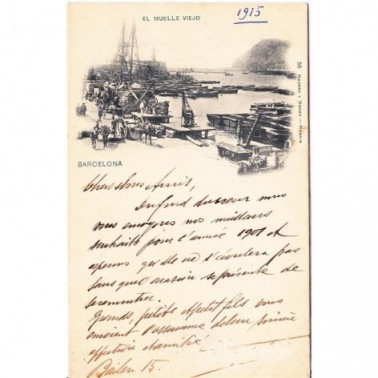 EL MUELLE VIEJO
1915
56 Hauser y Menet.—Madrid
BARCELONA
Chers bons Amis,
du fond du coeur nous
vous envoyons nos
souhaits pour l'année 1901 et
espérons qu'elle ne s'écoulera pas
sans que l'occasion se présente de
se rencontrer.
Grands, petits et petit fils vous
envoient l'assurance de leur sincère
affection
Bailen 15.